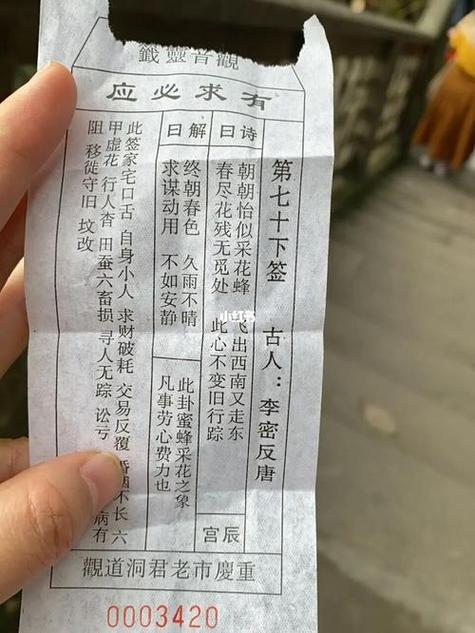 觀音靈籤
有求必应
第七十下签 古人：李密反唐
诗曰
朝朝恰似采花蜂 飞出西南又走东
春尽花残无觅处 此心不变旧行踪
辰宫
解曰
终朝春色 久雨不晴
求谋动用 不如安静
此卦蜜蜂采花之象
凡事劳心费力也
此签家宅口舌 自身小人 求财破耗 交易反覆 婚姻不长 六
甲虚花 行人杳 田蚕六畜损 寻人无踪 讼亏 病有
阻 移徙守旧 坟改
重慶市老君洞道觀
0003420
小红书